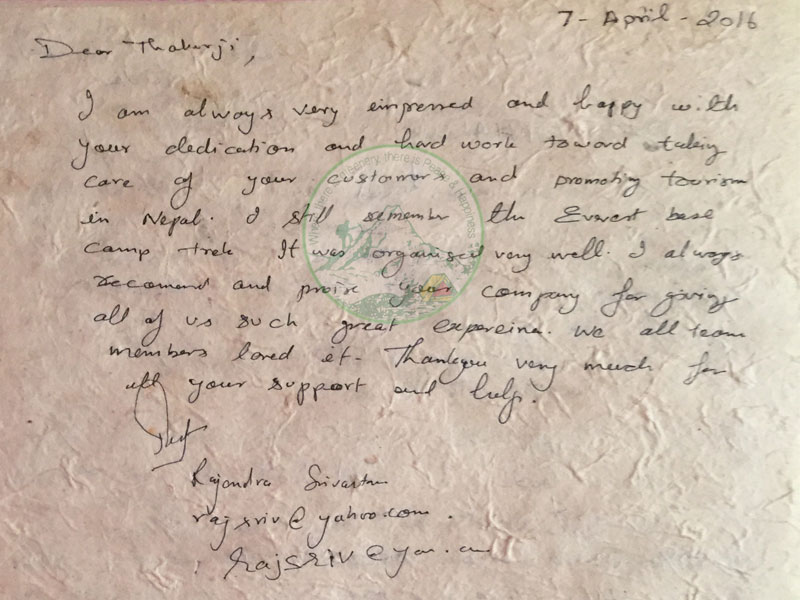 7 - April - 2016
Dear Thakurji,
I am always very empressed and happy with
your dedication and hard work toward taking
care of your customers and promoting tourism
in Nepal. I still remember the Everest base
camp trek It was organised very well. I always
recomand and praise your company for giving
all of us such great expereine. we all team
members loved et. Thankyou very much for
all your support and help.
Rajendra Srivastava
rajsriv@yahoo.com.
rajsriv@
there is Peace & Happiness